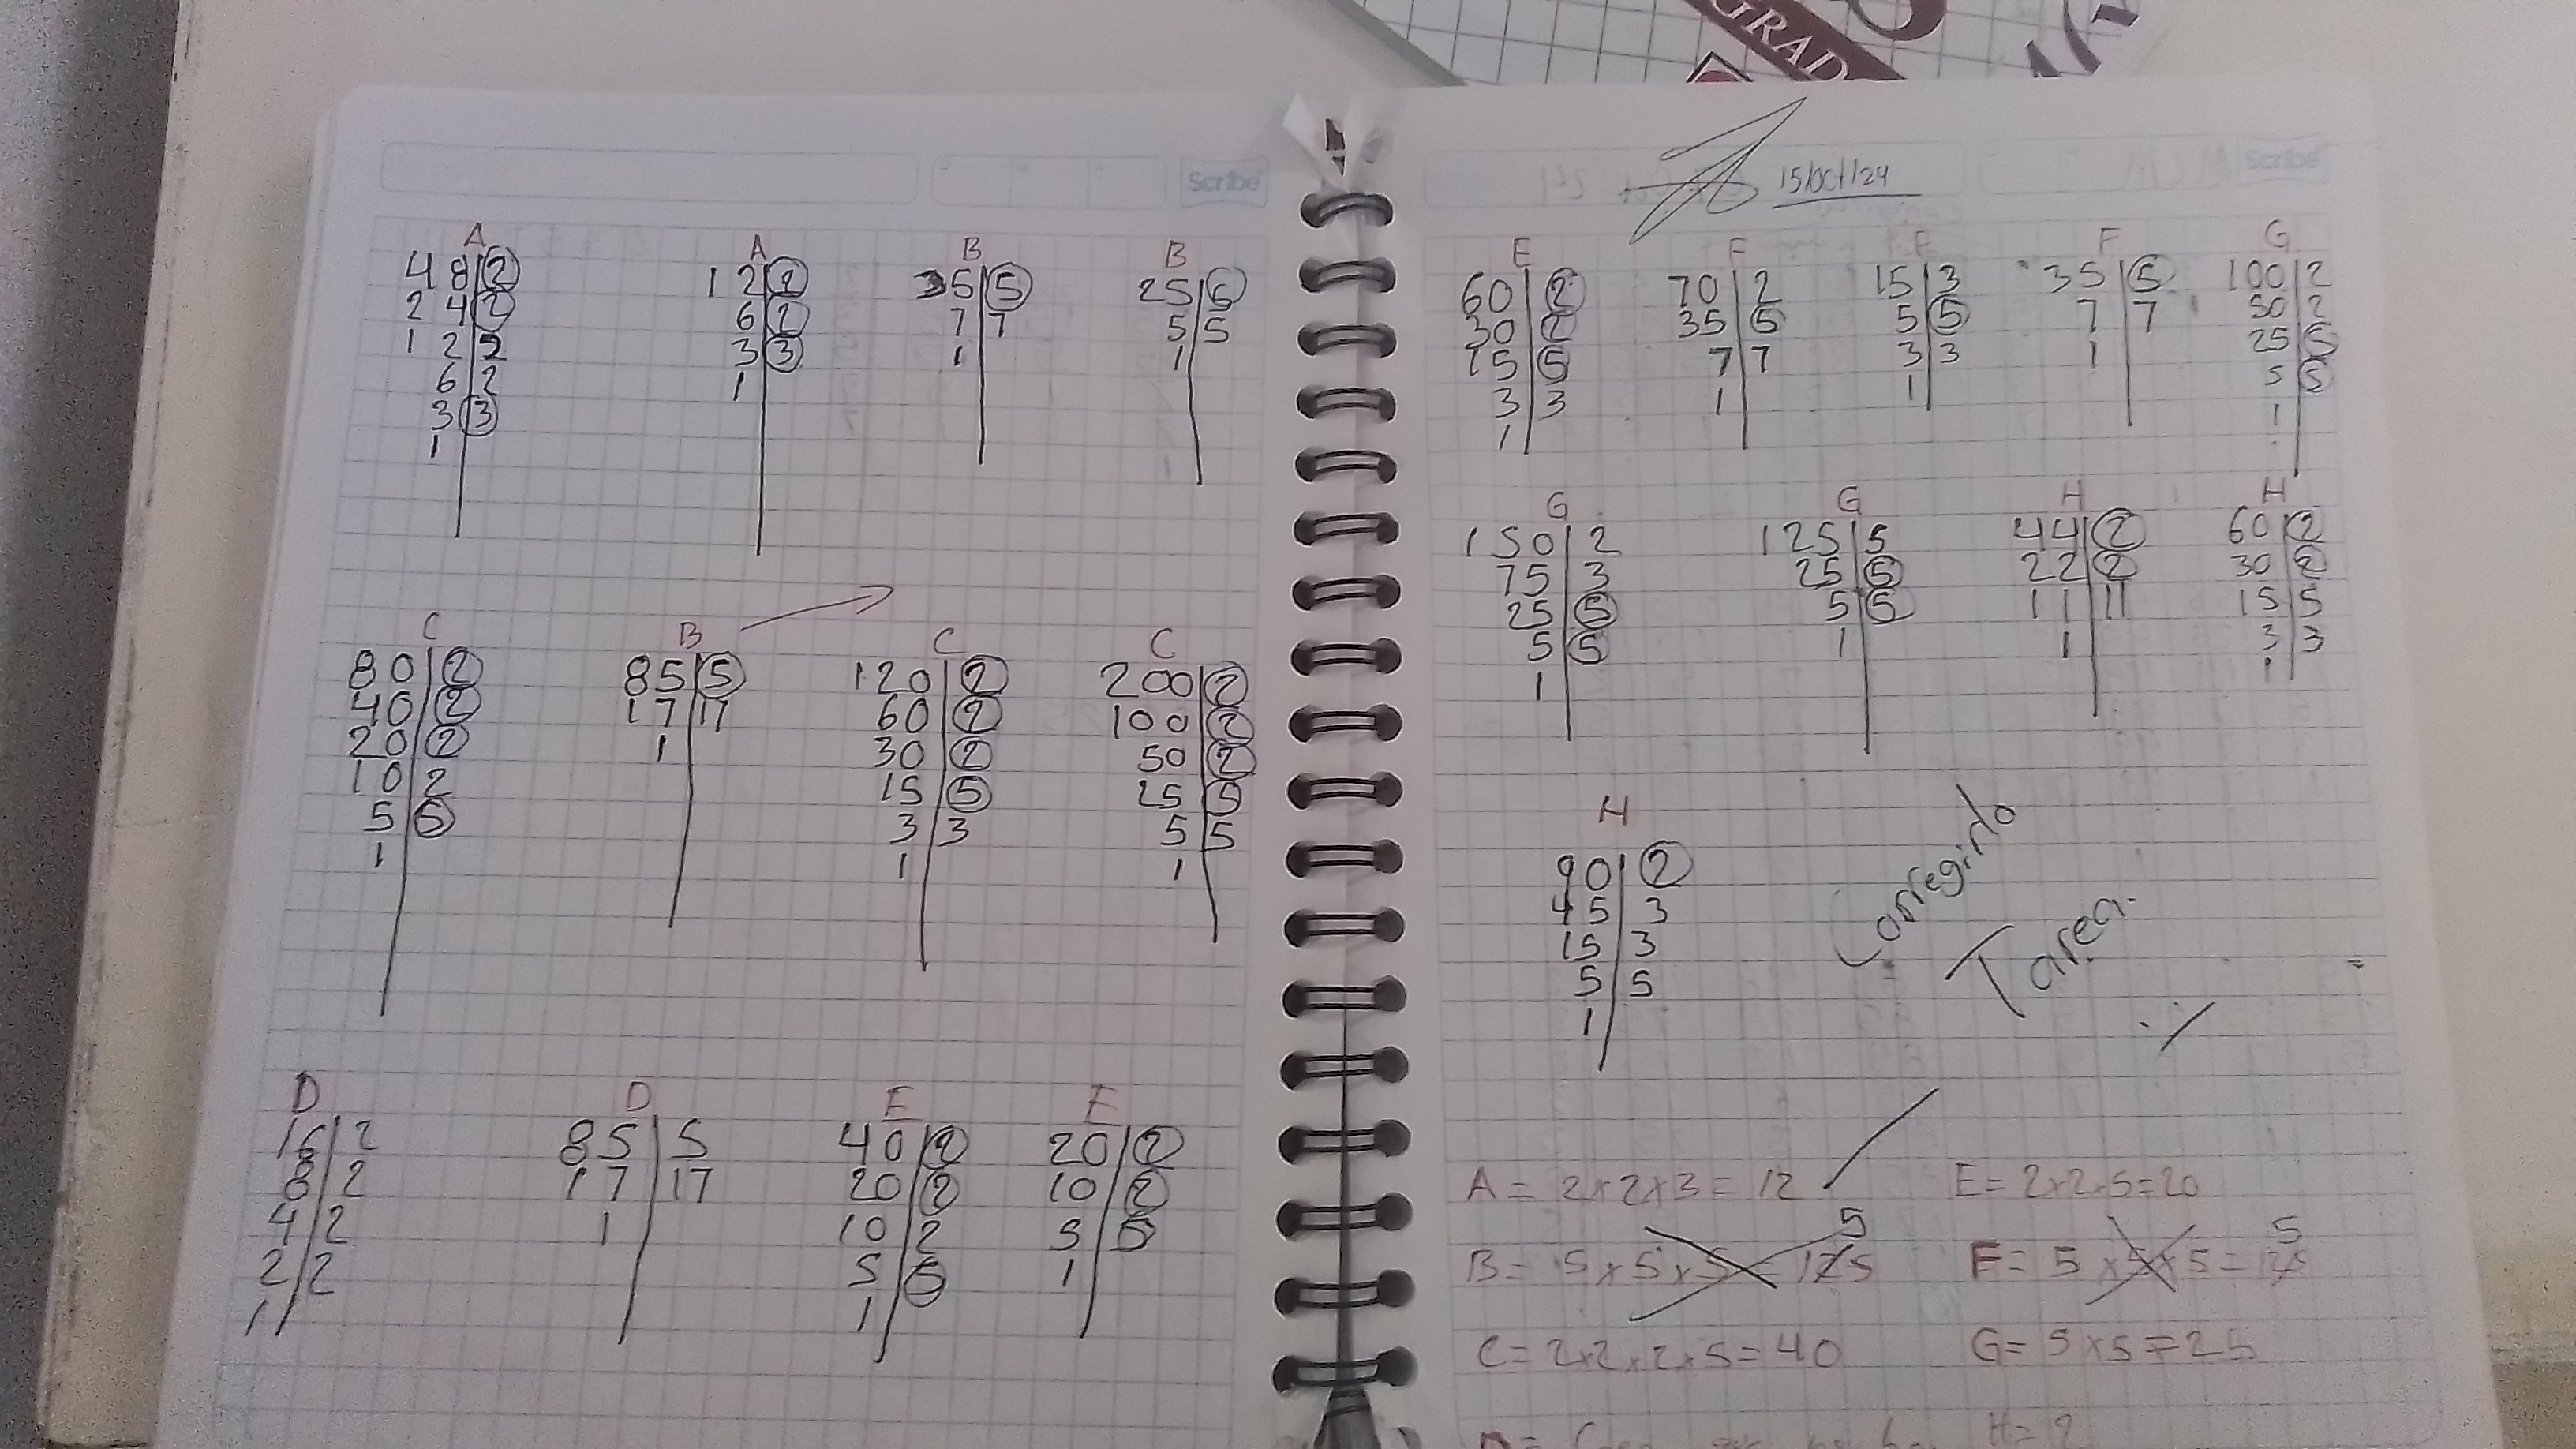 GRAD
Scribe
Scribe
15/Oct/24
A A B B
48 2 12 2 35 5 25 5
24 2 6 2 7 7 5 5
12 2 3 3 1 1
6 2 1
3 3
1
C B C C
80 2 85 5 120 2 200 2
40 2 17 17 60 2 100 2
20 2 1 30 2 50 2
10 2 15 5 25 5
5 5 3 3 5 5
1 1 1
D D E E
16 2 85 5 40 2 20 2
8 2 17 17 20 2 10 2
4 2 1 10 2 5 5
2 2 5 5 1
1 1
E F F F G
60 2 70 2 15 3 35 5 100 2
30 2 35 5 5 5 7 7 50 2
15 5 7 7 3 3 1 25 5
3 3 1 1 5 5
1 1
G G H H
150 2 125 5 44 2 60 2
75 3 25 5 22 2 30 2
25 5 5 5 11 11 15 5
5 5 1 1 3 3
1 1
H
90 2
45 3
15 3
5 5
1
Corregirlo
Tarea
A = 2x2x3 = 12 E = 2x2x5=20
5 5
B = 5x5x5 = 125 F = 5x5x5=125
C = 2x2x2x5=40 G = 5x5=25
D= H=2